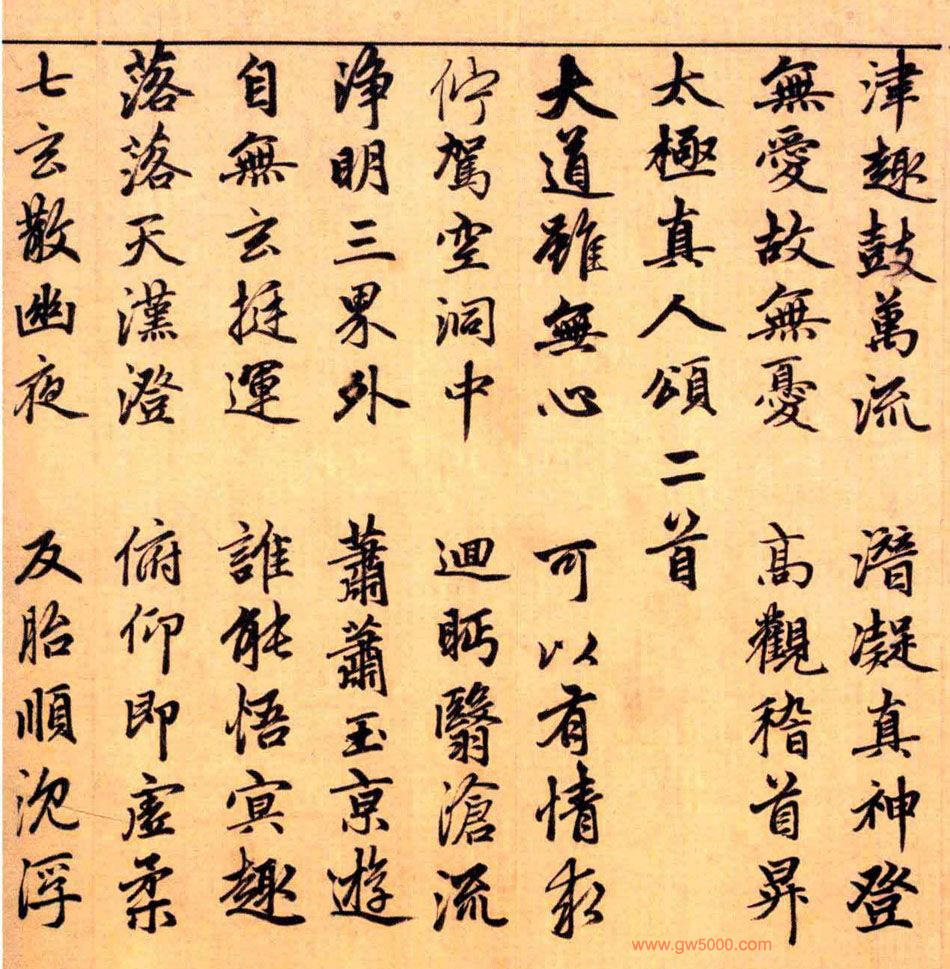 津趣鼓萬流 潛凝真神登
無愛故無憂 高觀稽首昇
太極真人頌二首
大道雖無心 可以有情求
佇駕空洞中 迴眄翳滄流
淨明三界外 蕭蕭玉京遊
自無玄挺運 誰能悟冥趣
落落天漢澄 俯仰即虛柔
七玄散幽夜 反胎順沈浮
www.gw5000.com